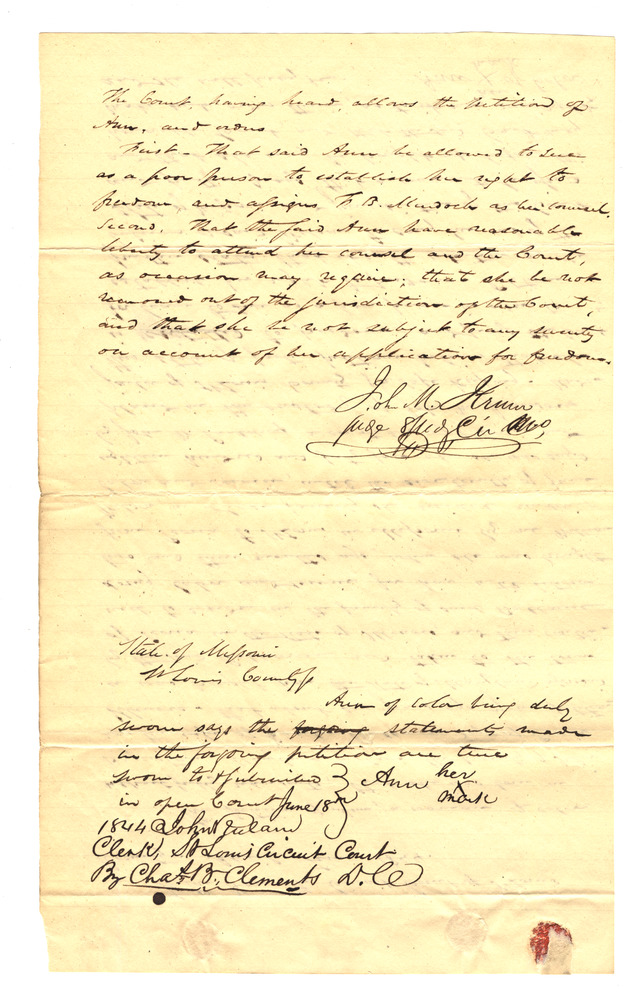 The Court, having heard, allows the petition of
Ann, and orders
First - That said Ann be allowed to sue
as a poor person to establish her right to
freedom and assigns F B. Murdoch as her counsel.
Second. That the said Ann have reasonable
liberty to attend her counsel and the Court,
as occasion may require; that she be not
removed out of the jurisdiction of the Court,
and that she be not subject to any severity
on account of her application for freedom.
John M. Krum
Judge 8 Judg Cir Mo,
State of Missouri
St Louis County
Ann of color being duly
sworn says the forgoing statements made
in the forgoing petition are true
Sworn to & subscribed } Ann her
in open Court June 18th x mark
1844 John Ruland
Clerk, St Louis Circuit Court
By Chas. B. Clements D.C